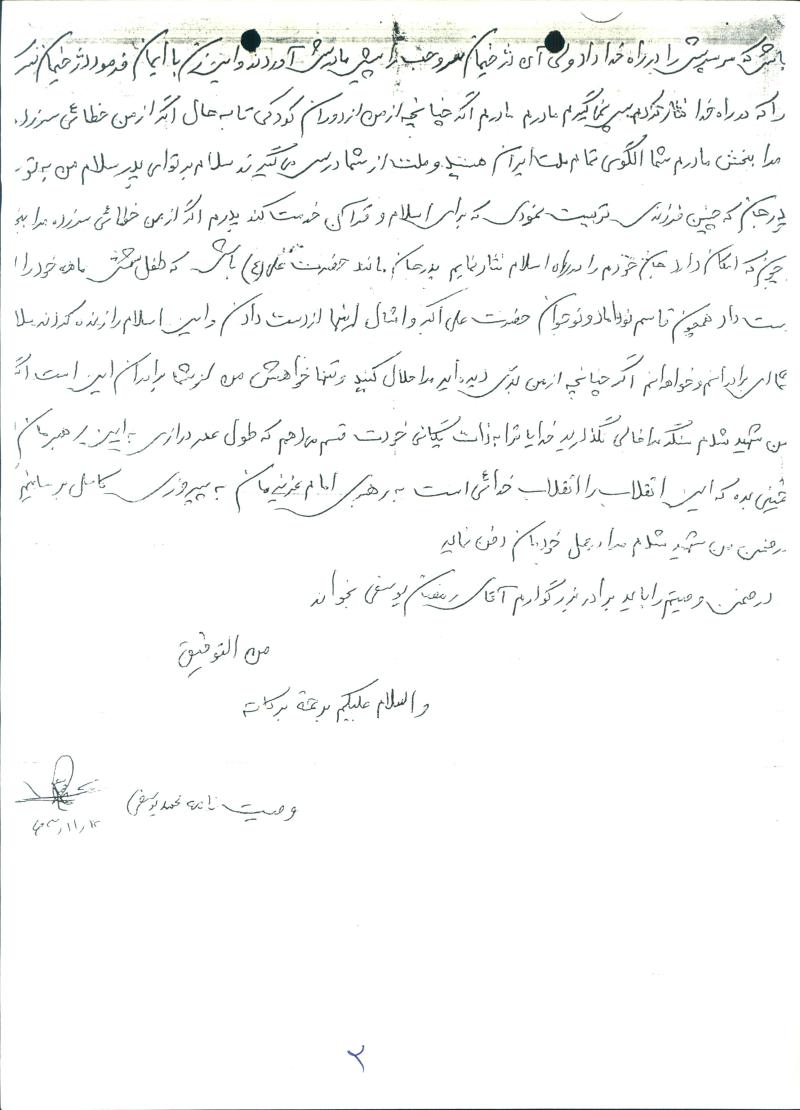 باش که سر پسرش را در راه خدا داد ولی آن دژخیمان سر وحب را پیش مادرش آوردند و این زن با ایمان فرمود دژخیمان
را که در راه خدا نثار کردم پس نمی‌گیرم مادرم مادرم اگر چنانچه از من از دوران کودکی تا به حال اگر از من خطائی سرزده
مرا ببخش مادرم شما الگوی تمام ملت ایران هستید و ملت از شما درس می گیرند سلام بر تو ای پدر سلام من به تو
پدر جان که چنین فرزندی تربیت نمودی که برای اسلام و قرآن خدمت کند پدرم اگر از من خطائی سرزده مرا
چون که امکان دارد جان خودم را در راه اسلام نثار نمایم پدر جان مانند حضرت علی (ع) باش که طفل شش ماهه خود را
دست داد همچون قاسم نوداماد و نوجوان حضرت علی اکبر و امثال اینها از دست دادن و این اسلام را زنده کردند
شما ای برادرانم و خواهرانم اگر چنانچه از من بدی دیده‌اید مرا حلال کنید و تنها خواهش من از شما برادران این است اگر
من شهید شدم سنگر مرا خالی نگذارید خدایا ترا به ذات یگانی خودت قسم میدهم که طول عمر درازی به این رهبرمان
خمینی بده که این انقلاب را انقلاب خدائی است به رهبری امام عزیزمان به پیروزی کامل برسانیم
درضمن من شهید شدم مرا در محل خودمان دفن نمایید
درضمن وصیتم را باید برادر بزرگوارم آقای رمضان یوسفی بخواند
من التوفیق
والسلام علیکم برحمة برکاته
وصیت نامه محمد یوسفی
۲